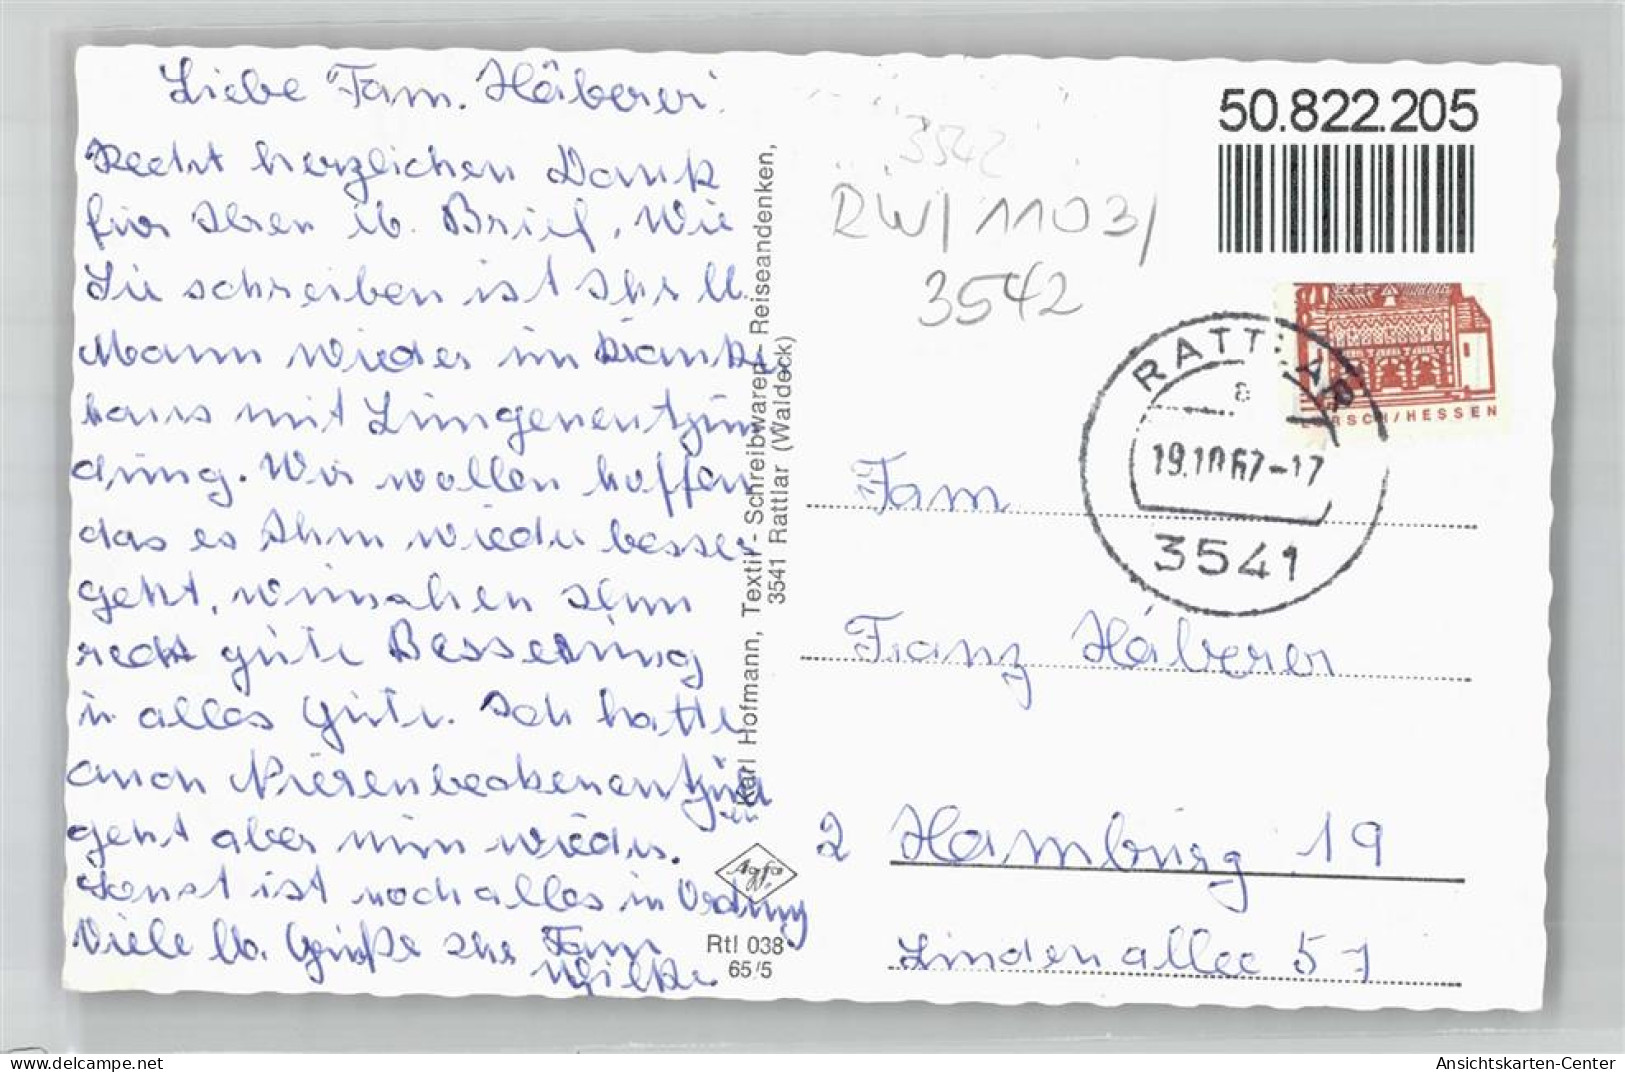 Liebe Fam. Häberer
Recht herzlichen Dank
für Ihren lb. Brief. Wie
Sie schreiben ist Ihr lb.
Mann wieder im Kranken
haus mit Lungenentzün
dung. Wir wollen hoffen
das es Ihm wieder besser
geht, wünschen Ihm
recht gute Besserung
u. alles Gute. Ich hatte
auch Nierenbeckenentzün
geht aber nun wieder.
Sonst ist noch alles in Ordnung
Viele lb. Grüße Ihre Fam
Wilke
Karl Hofmann, Textil - Schreibwaren - Reiseandenken,
3541 Rattlar (Waldeck)
Agfa
Rtl 038
65/5
3542
RW/1103/
3542
50.822.205
LORSCH/HESSEN
RATTLAR
a
19.10.67-17
3541
Fam
Franz Häberer
2 Hamburg 19
Lindenallee 51
delcampe.net
Ansichtskarten-Center